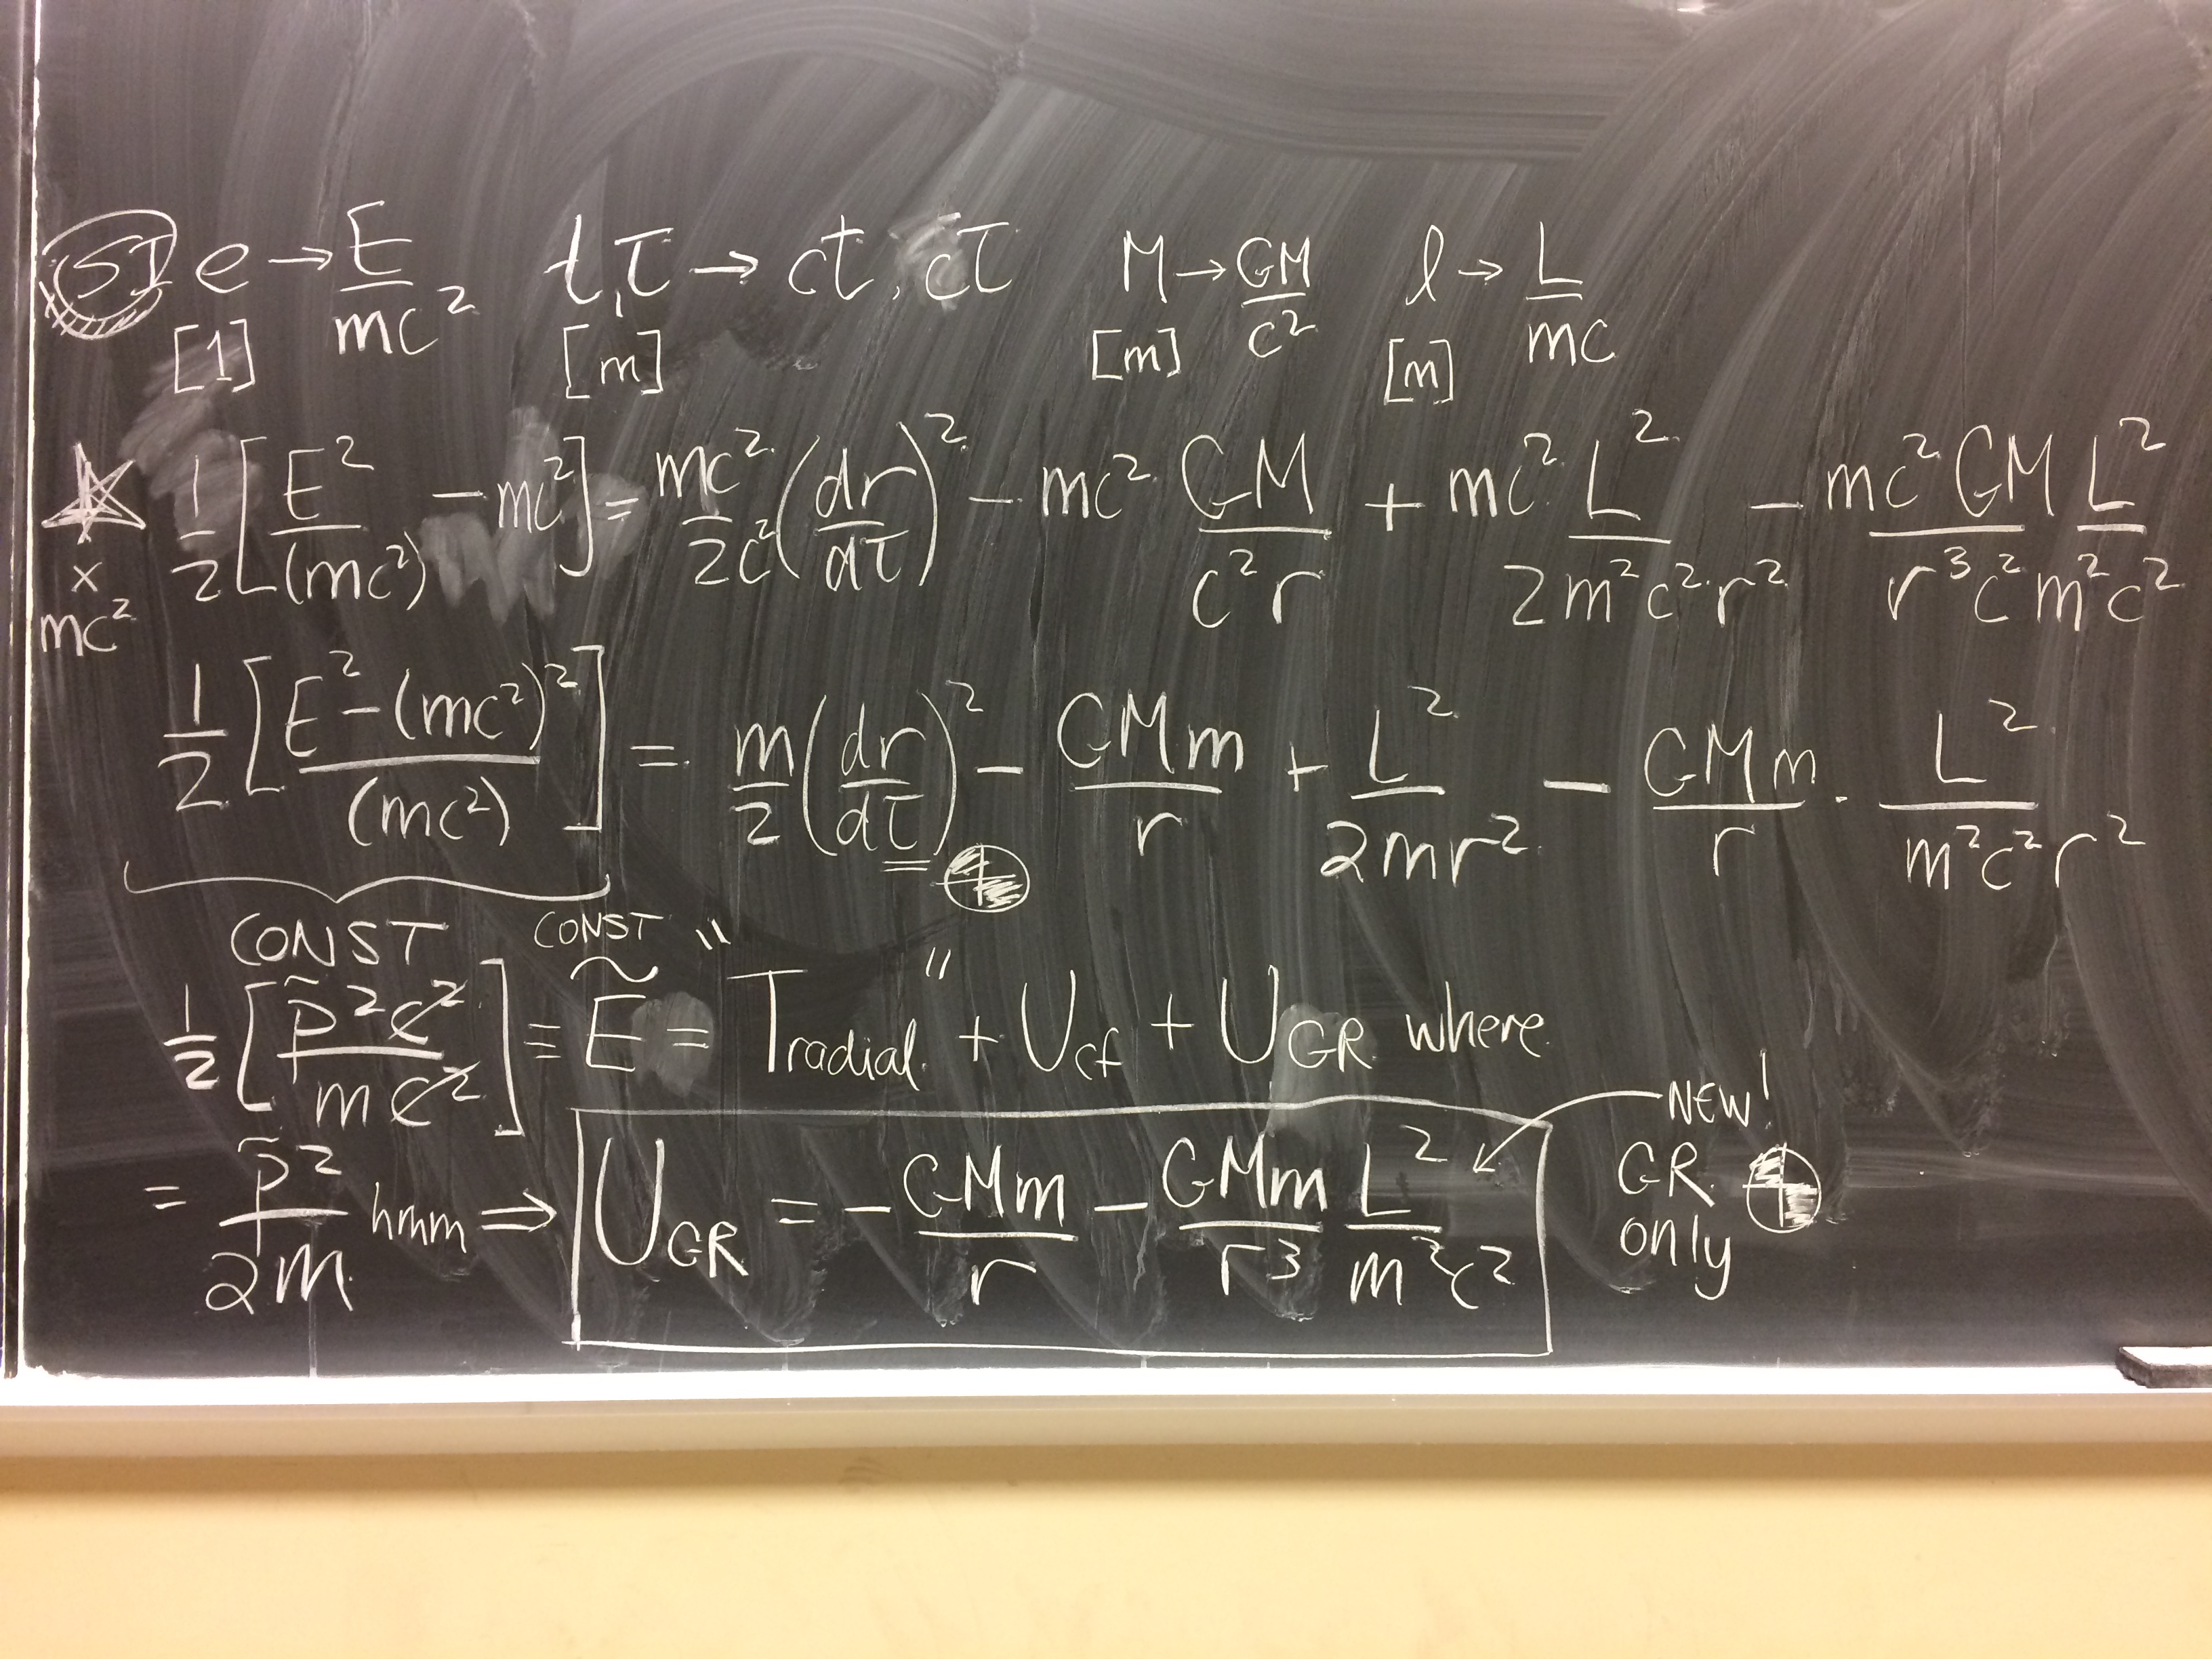 SI e → E/mc² t,τ → ct, cτ M → GM/c² l → L/mc
[1] [m] [m] [m]
☆ × mc² 1/2 [E²/(mc²) − mc²] = mc²/2c² (dr/dτ)² − mc² GM/c²r + mc² L²/2m²c²r² − mc²GM/r³c² L²/m²c²
1/2 [E² − (mc²)²/(mc²)] = m/2 (dr/dτ)² − GMm/r + L²/2mr² − GMm/r · L²/m²c²r²
CONST CONST
1/2 [p̃²c²/mc²] ≡ Ẽ = "T radial" + U cf + U GR where
NEW!
= p̃²/2m hmm ⇒ U GR = − GMm/r − GMm/r³ L²/m²c² GR
only